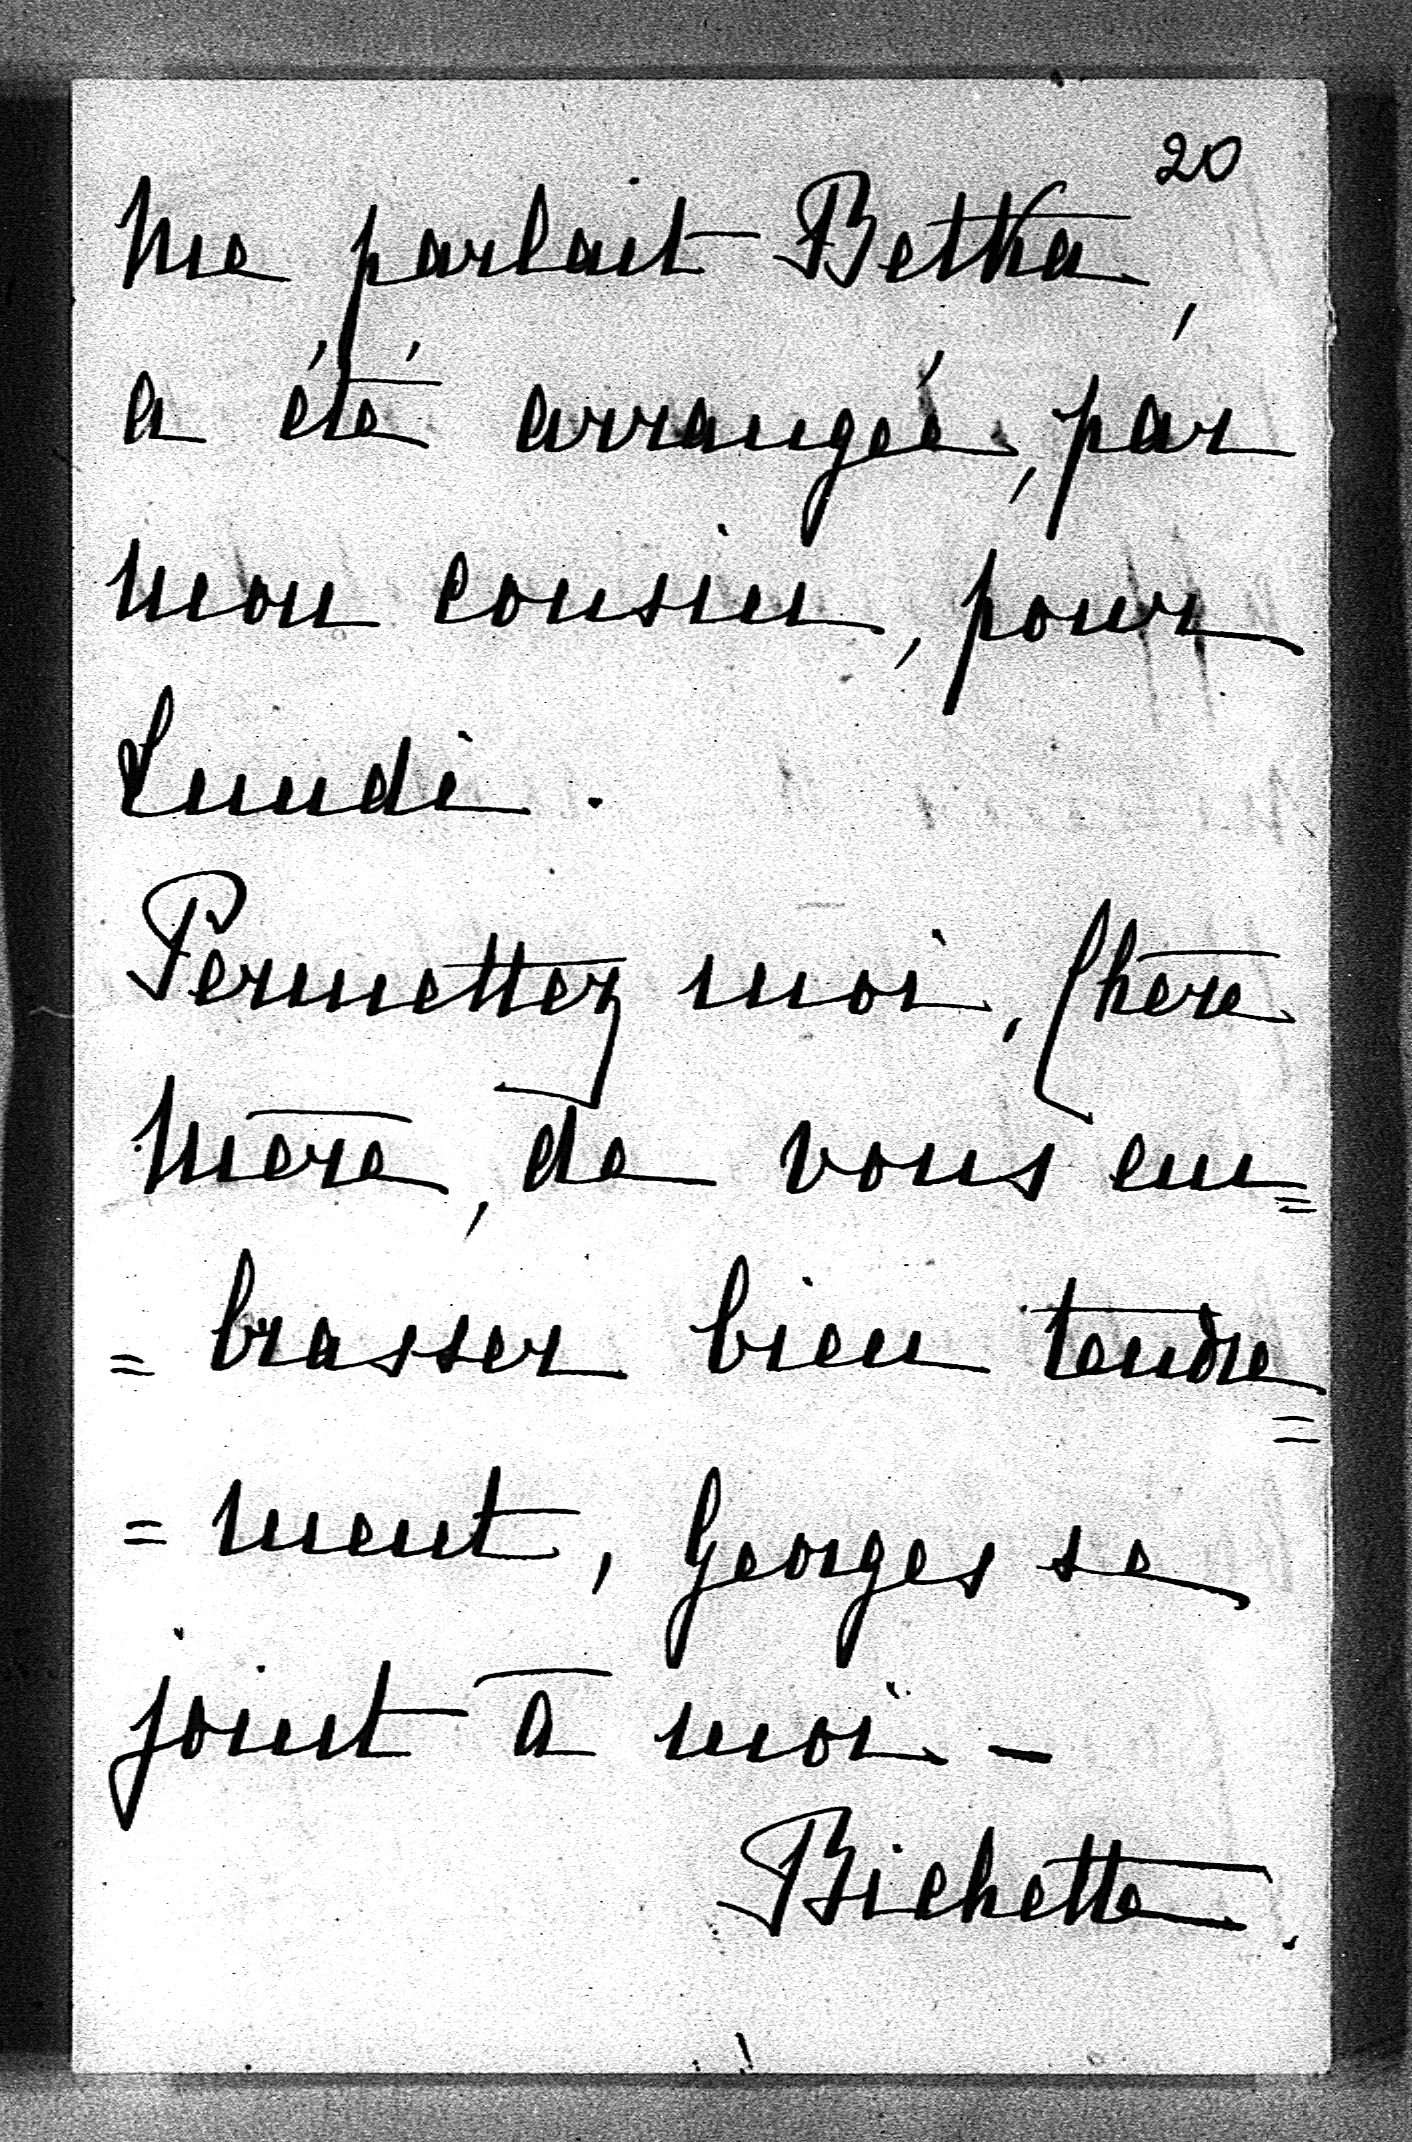 20
me parlait Betka,
a été arrangé, par
mon cousin, pour
Lundi.
Permettez moi, Chère
Mère, de vous em=
=brasser bien tendre=
=ment, Georges se
joint à moi –
Bichette.